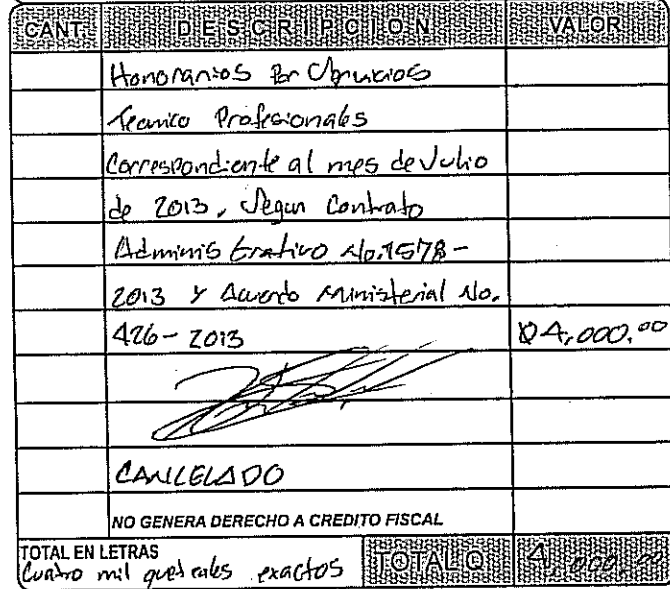 CANT. DESCRIPCION VALOR
Honorarios Por Servicios
Tecnico Profesionales
Correspondiente al mes de Julio
de 2013, Segun Contrato
Administrativo No. 1578-
2013 y Acuerdo Ministerial No.
426-2013 Q4,000.00
CANCELADO
NO GENERA DERECHO A CREDITO FISCAL
TOTAL EN LETRAS
Cuatro mil quetzales exactos TOTAL Q 4,000.00